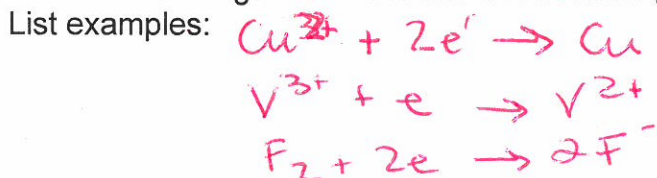 List examples: Cu²⁺ + 2e⁻ → Cu
V³⁺ + e → V²⁺
F₂ + 2e → 2F⁻